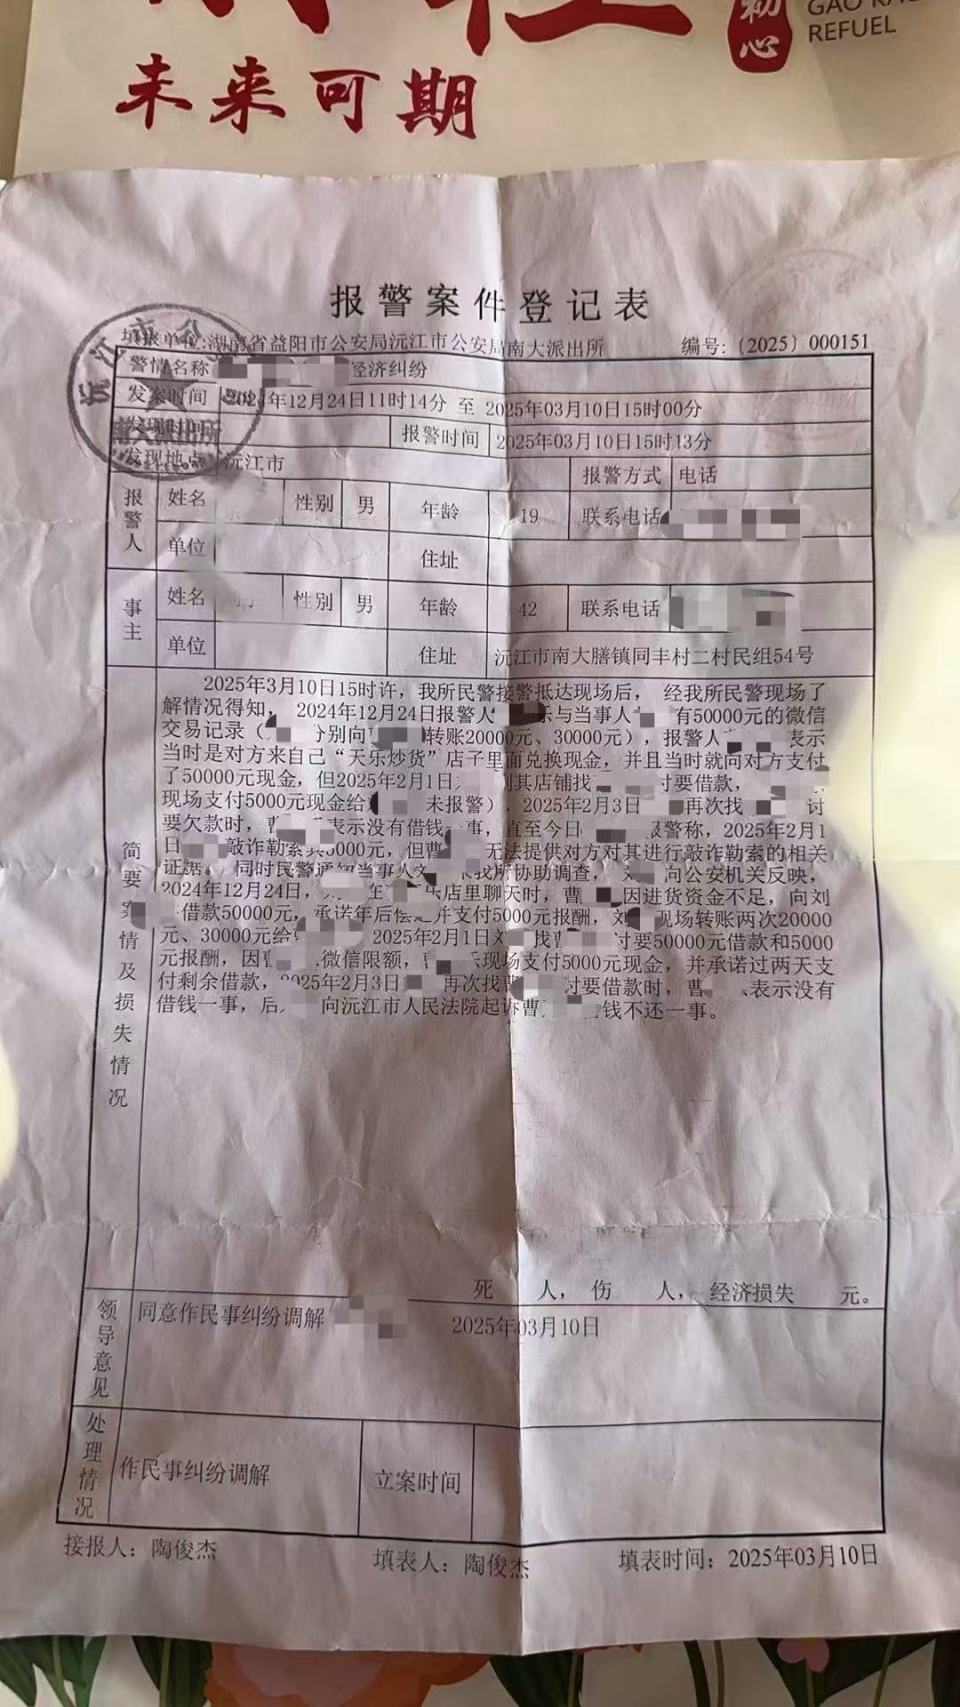 初心
GAO KAO
REFUEL
未来可期
报警案件登记表
填报单位:湖南省益阳市公安局沅江市公安局南大派出所 编号:〔2025〕000151
警情名称 经济纠纷
发案时间 年12月24日11时14分 至 2025年03月10日15时00分
发现时间 报警时间 2025年03月10日15时13分
发现地点 沅江市 报警方式 电话
报警人 姓名 性别 男 年龄 19 联系电话
单位 住址
事主 姓名 性别 男 年龄 42 联系电话
单位 住址 沅江市南大膳镇同丰村二村民组54号
简要案情及损失情况
2025年3月10日15时许，我所民警接警抵达现场后， 经我所民警现场了
解情况得知， 2024年12月24日报警人 乐与当事人 有50000元的微信
交易记录（ 分别向 转账20000元、30000元），报警人 表示
当时是对方来自己“天乐炒货”店子里面兑换现金，并且当时就向对方支付
了50000元现金，但2025年2月1日 到其店铺找 讨要借款，
现场支付5000元现金给 未报警），2025年2月3日 再次找 讨
要欠款时，曹 表示没有借钱一事，直至今日 报警称，2025年2月1
日 敲诈勒索其5000元，但曹 无法提供对方对其进行敲诈勒索的相关
证据。同时民警通知当事人 来我所协助调查， 向公安机关反映，
2024年12月24日， 在 乐店里聊天时，曹 因进货资金不足，向刘
借款50000元，承诺年后偿还并支付5000元报酬，刘 现场转账两次20000
元、30000元给 2025年2月1日刘 找曹 讨要50000元借款和5000
元报酬，因曹 微信限额，曹 乐现场支付5000元现金，并承诺过两天支
付剩余借款，2025年2月3日 再次找曹 讨要借款时，曹 表示没有
借钱一事，后 向沅江市人民法院起诉曹 钱不还一事。
死 人，伤 人，经济损失 元。
领导意见 同意作民事纠纷调解 2025年03月10日
处理情况 作民事纠纷调解 立案时间
接报人：陶俊杰 填表人：陶俊杰 填表时间：2025年03月10日